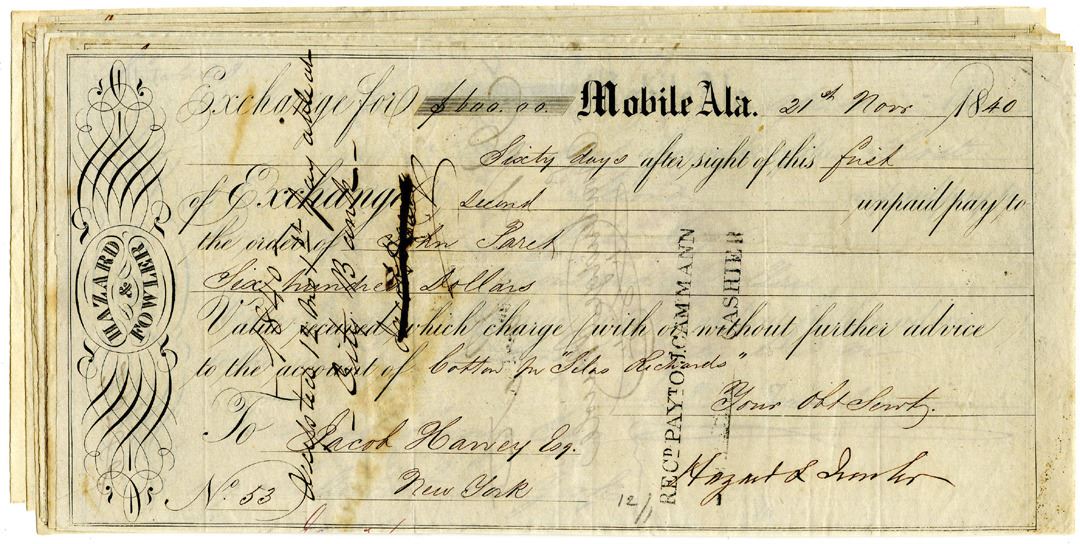 Exchange for $600.00. Mobile Ala. 21st Novr 1840
Sixty days after sight of this first
of Exchange second unpaid pay to
the order of John Paret
Six hundred Dollars
Value received, which charge (with or without further advice
to the account of Cotton pr "Silas Richards"
Your Obt Servts.
To Jacob Harvey Esq. Hazard & Fowler
New York
No. 53
12/1
HAZARD & FOWLER
City Bank
RECD PAYTON.CAMMANN
CASHIER